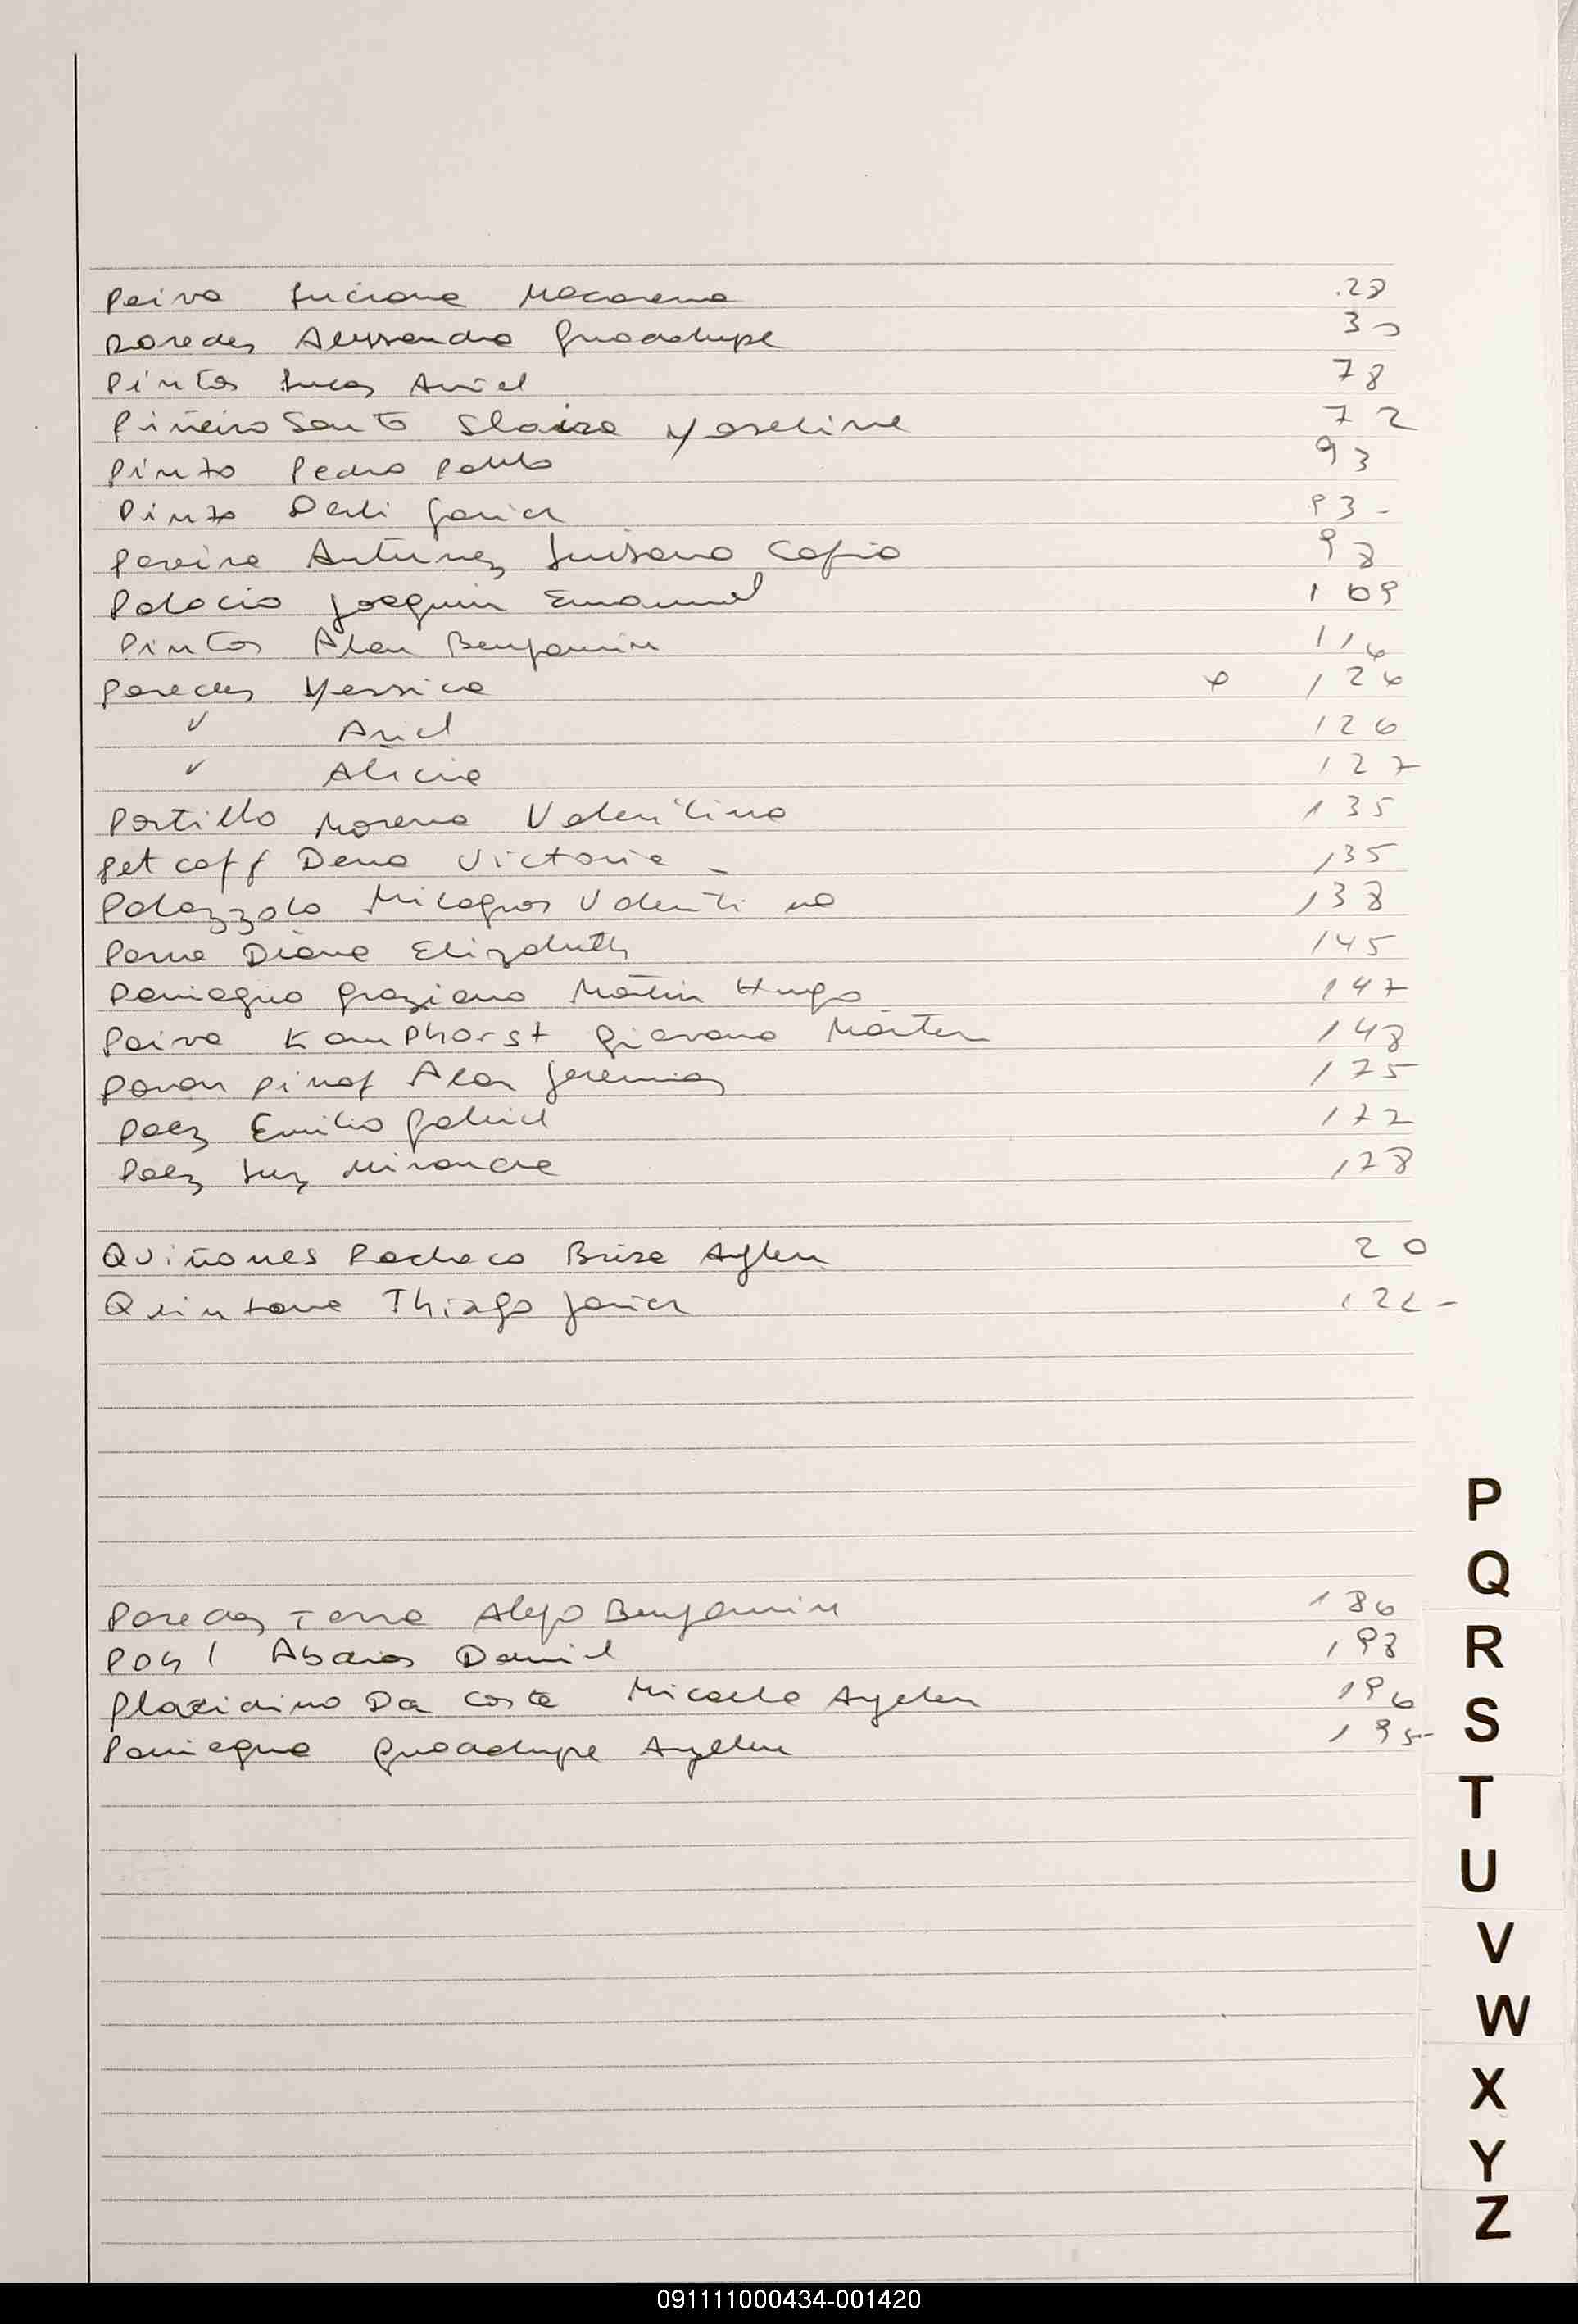 Paiva Luciana Macarena 28
Paredes Alessandra Guadalupe 30
Pintos Lucas Ariel 78
Piñeiro Santo Yoseline 72
Pinto Pedro Pablo 93
Pinto Javier 93-
Pereira Antunez Luisana 98
Palacio Joaquin Emanuel 109
Pintos Alan Benjamin 116
Paredes Yessica 126
" Ariel 126
" Alicia 127
Portillo Morena Valentina 135
Petcoff Dena Victoria - 135
Palazzolo Milagros Valentina 138
Parra Diana Elizabeth 145
Paniagua Graziano Martin Hugo 147
Paiva Kamphorst Giovana 148
Pavon Alan Jeremias 175
Paez Emilio Gabriel 172
Paez Luz Miranda 178
Quiñones Pacheco Brisa Aylen 20
Quintana Thiago Javier 122-
P
Q
Paredes Terra Alejo Benjamin 186
R
Daniel 198
Da Costa Micaela Ayelen 196
S
Paniagua Guadalupe Ayelen 195
T
U
V
W
X
Y
Z
091111000434-001420